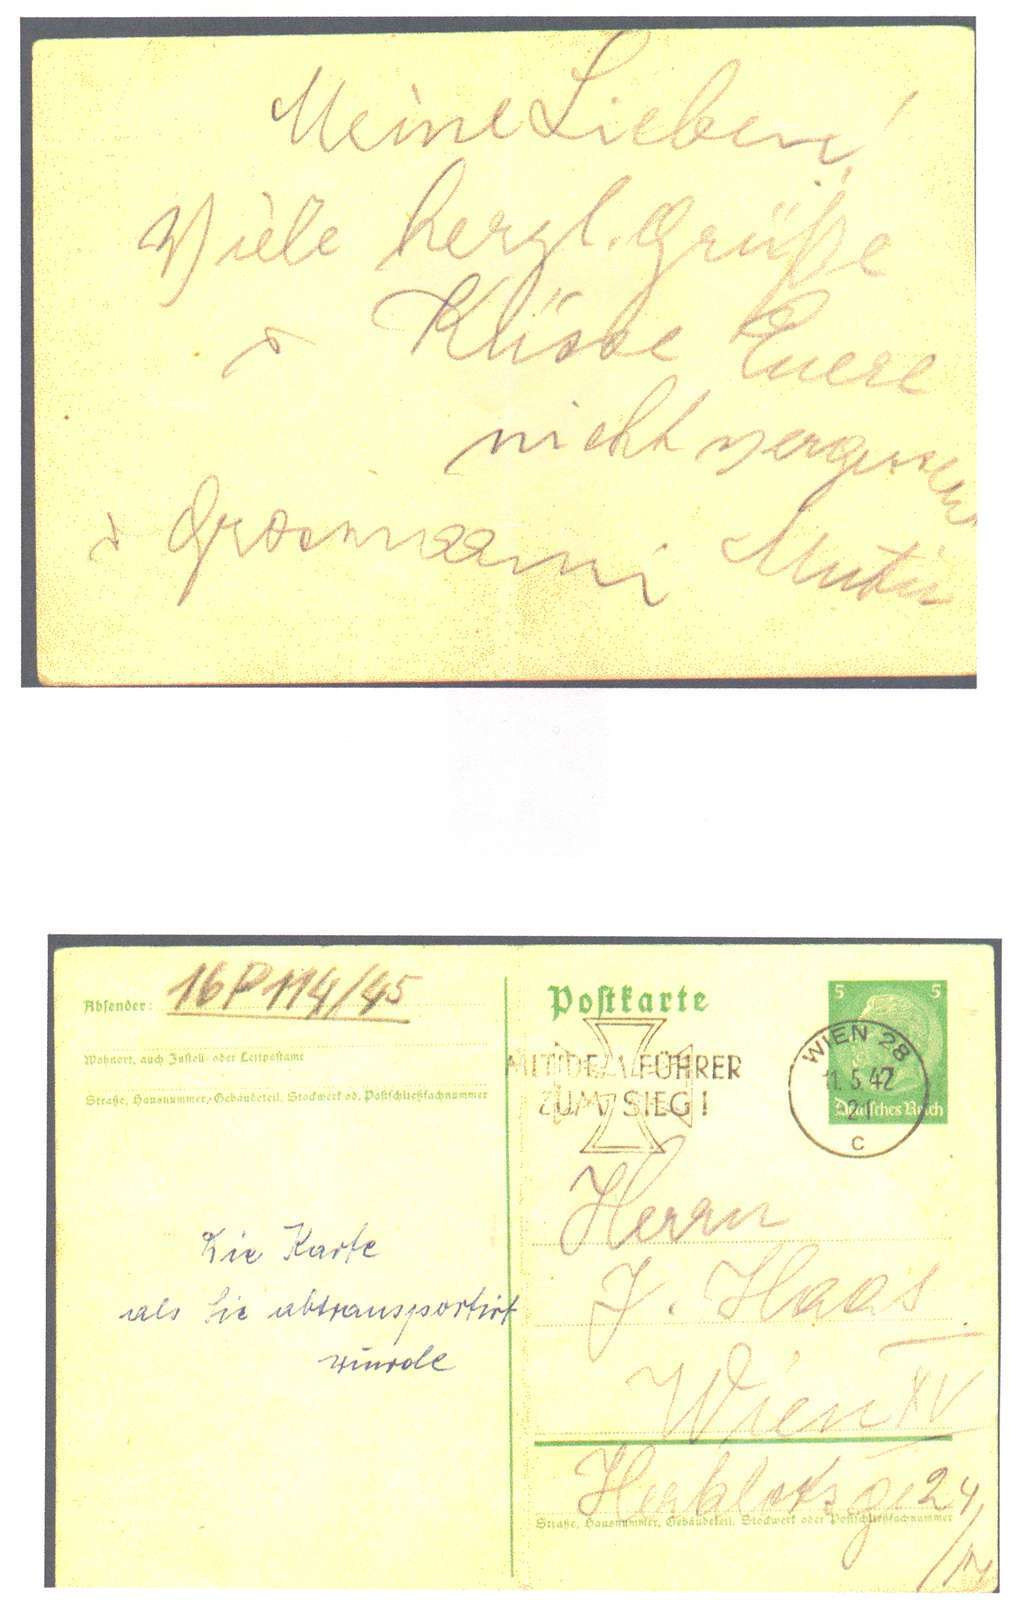 Meine Lieben!
Viele herzl. Grüße
u Küsse Euere
nicht vergessen
u Grossmami Mutti
Absender: 16P 114/45
Wohnort, auch Zustell- oder Leitpostamt
Straße, Hausnummer, Gebäudeteil, Stockwerk od. Postschließfachnummer
Die Karte
als Sie abtransportirt
wurde
Postkarte
MIT DEM FÜHRER
ZUM SIEG!
5 5
Deutsches Reich
WIEN 28
11.5.42
21
c
Herrn
J. Haas
Wien XV
Herklotzg. 24/
Straße, Hausnummer, Gebäudeteil, Stockwerk oder Postschließfachnummer